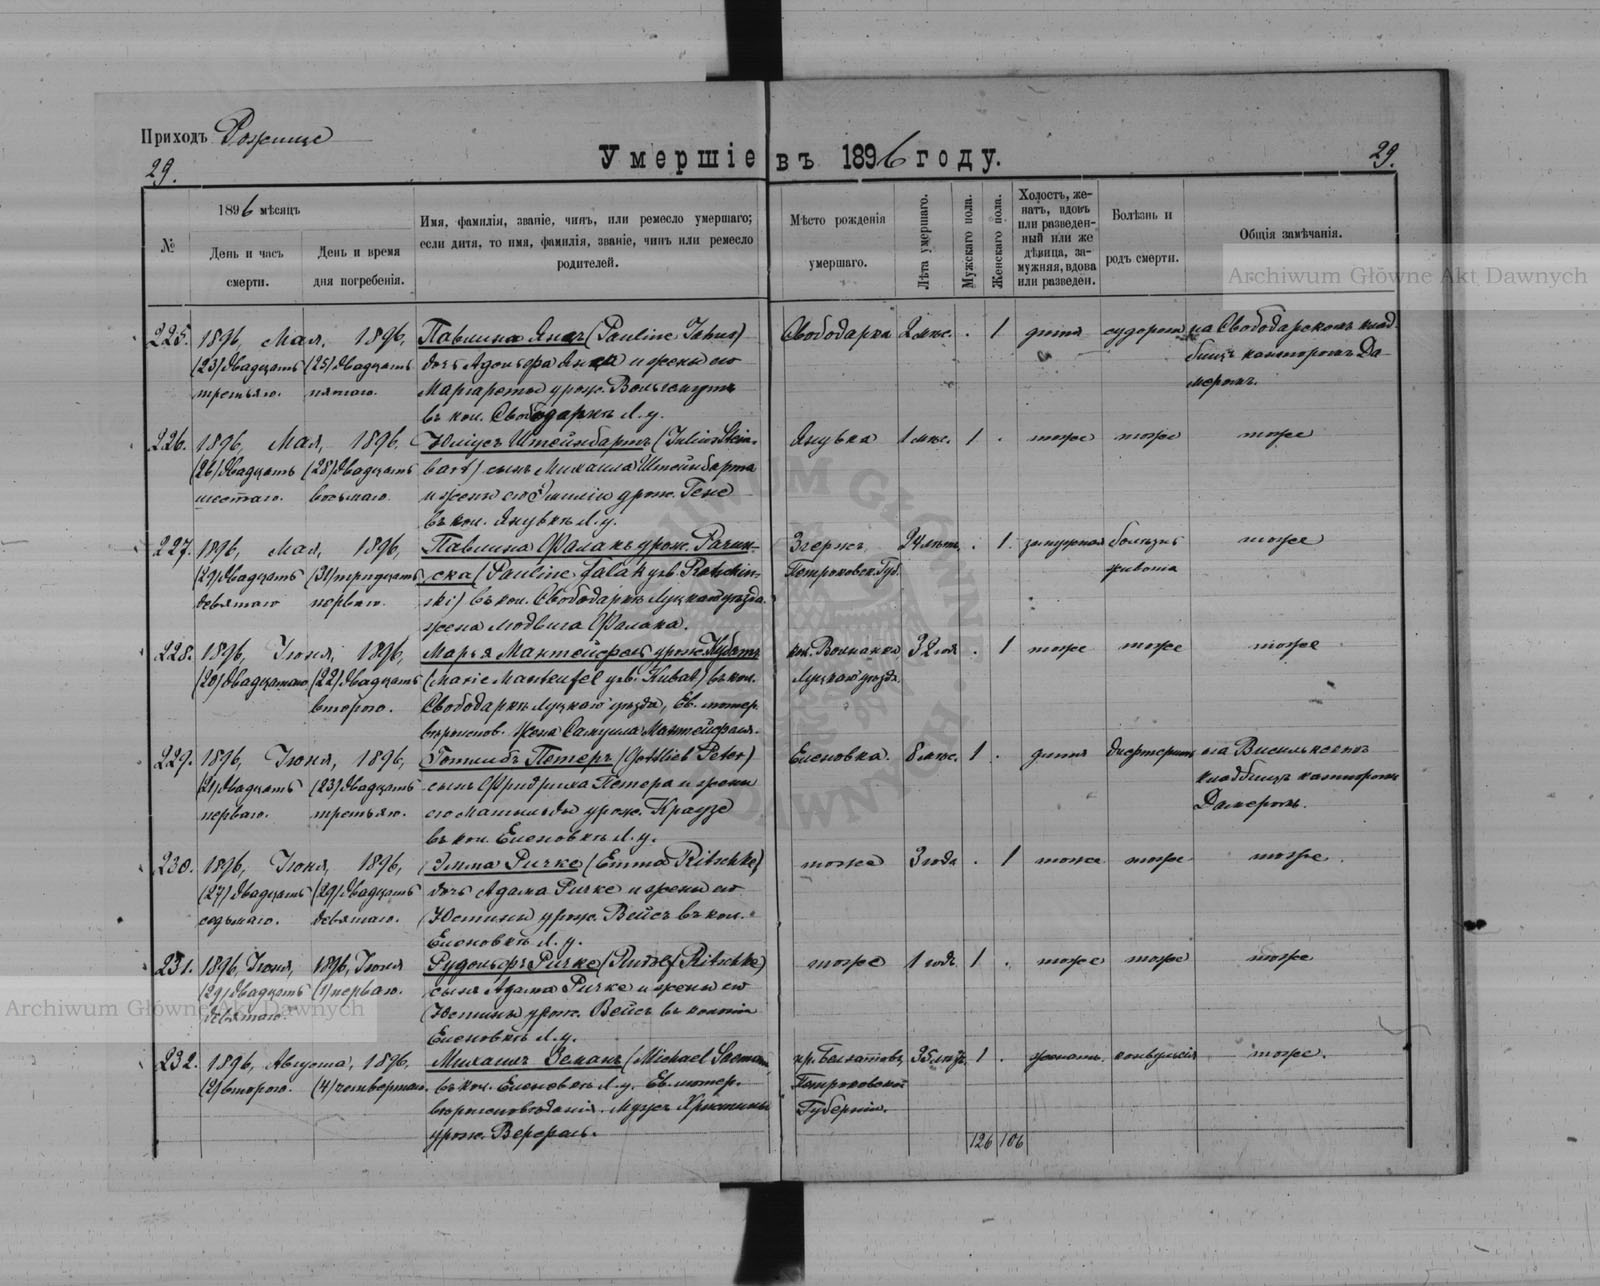 Приходъ Рожище
29.
Умершіе въ 1896 году.
29.
№
1896 мѣсяцъ
День и часъ смерти.
День и время дня погребенія.
Имя, фамилія, званіе, чинъ, или ремесло умершаго;
если дитя, то имя, фамилія, званіе, чинъ или ремесло
родителей.
Мѣсто рожденія
умершаго.
Лѣта умершаго.
Мужскаго пола.
Женскаго пола.
Холостъ, же-
натъ, вдовъ
или разведен-
ный или же
дѣвица, за-
мужняя, вдова
или разведен.
Болѣзнь и
родъ смерти.
Общія замѣчанія.
Archiwum Główne Akt Dawnych
225. 1896, Мая, 1896, Павлина Янъ (Pauline Jahns) Свободарка 2 мѣс. . 1 дитя судороги на Свободарскомъ клад-
(23) двадцать (25) двадцать дочь Адольфа Яна и жены его бищѣ канторомъ Да-
третьяго. пятаго. Маргареты урож. Вольгемутъ меромъ.
въ кол. Свободаркѣ Л. у.
226. 1896, Мая, 1896, Юліусъ Штейнбартъ (Julius Stein- Янувка 1 мѣс. 1 . тоже тоже тоже
(26) двадцать (28) двадцать bart) сынъ Михаила Штейнбарта
шестаго. восьмаго. и жены его Эмиліи урож. Генс
въ кол. Янувкѣ Л. у.
227. 1896, Мая, 1896, Павлина Фалакъ урож. Рачин- Згержъ 24 лѣтъ . 1. замужняя болѣзнь тоже
(29) двадцать (31) тридцать ска (Pauline Falak geb. Ratschin- Петроковск. Губ. живота
девятаго перваго. ski) въ кол. Свободаркѣ Луцкаго уѣзда.
жена Людвига Фалака.
228. 1896, Іюня, 1896, Марья Мантейфель урож. Кубатъ кол. Волнянка 32 года . 1 тоже тоже тоже
(20) двадцатаго (22) двадцать (Marie Manteufel geb. Kubat) въ кол. Луцкаго уѣзда
втораго. Свободаркѣ Луцкаго уѣзда, Ев. лютер.
вѣроиспов. Жена Самуила Мантейфеля.
229. 1896, Іюня, 1896, Готлибъ Петеръ (Gottlieb Peter) Еленовка. 6 мѣс. 1 . дитя дифтеритъ на
(21) двадцать (23) двадцать сынъ Фридриха Петера и жены кладбищѣ канторомъ
перваго. третьяго. его Матильды урож. Краузе Дамеромъ.
въ кол. Еленовкѣ Л. у.
230. 1896, Іюня, 1896, Эмма Ричке (Emma Ritschke) тоже 3 года . 1 тоже тоже тоже
(27) двадцать (29) двадцать дочь Адама Ричке и жены его
седьмаго. девятаго. Юстины урож. Вейсъ въ кол.
Еленовкѣ Л. у.
231. 1896, Іюня, 1896, Іюля Рудольфъ Ричке (Rudolf Ritschke) тоже 1 годъ 1 . тоже тоже тоже
(29) двадцать (1) перваго. сынъ Адама Ричке и жены его
девятаго. Юстины урож. Вейсъ въ колоніи
Еленовкѣ Л. у.
232. 1896, Августа, 1896, Михаилъ Земанъ (Michael Seeman) гр. Белхатовъ, 36 лѣтъ 1 . женатъ конвульсія тоже.
(2) втораго. (4) четвертаго. въ кол. Еленовкѣ Л. у. Ев. лютер. Петроковской
вѣроисповѣданія. Мужъ Христины Губерніи.
урож. Верфель.
126 106
Archiwum Główne Akt Dawnych
ARCHIWUM GŁÓWNE AKT DAWNYCH